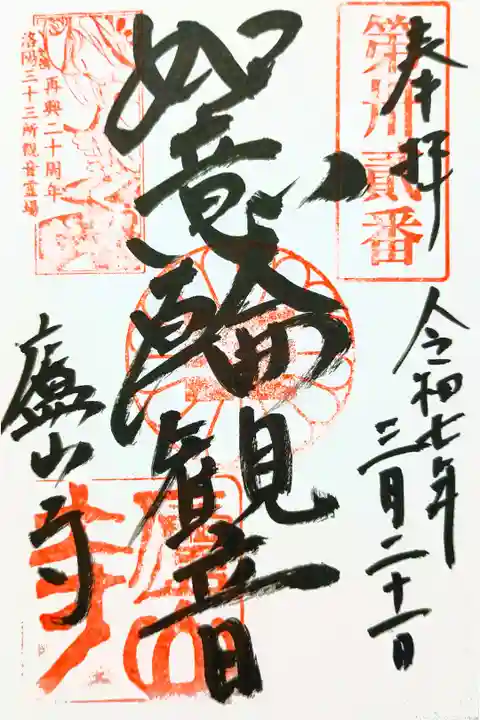 奉拝
第卅貳番
令和七年
三月二十一日
如意輪観音
廬山寺
再興二十周年
洛陽三十三所観音霊場
廬山
寺